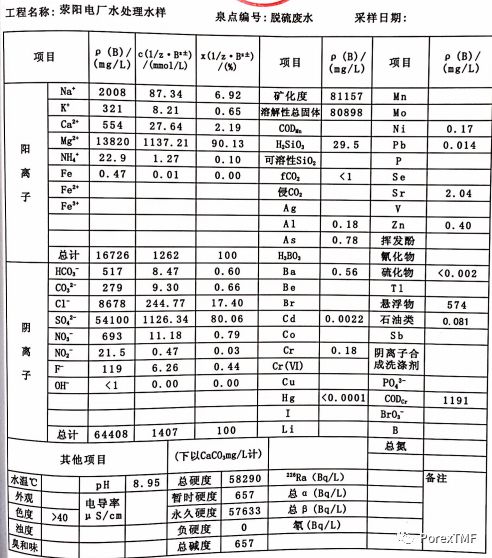 工程名称: 荥阳电厂水处理水样 泉点编号: 脱硫废水 采样日期:
项目 ρ (B)/(mg/L) c(1/z·Bᶻ±)/(mmol/L) x(1/z·Bᶻ±)/(%) 项目 ρ (B)/(mg/L) 项目 ρ (B)/(mg/L)
阳离子
Na⁺ 2008 87.34 6.92 矿化度 81157 Mn
K⁺ 321 8.21 0.65 溶解性总固体 80898 Mo
Ca²⁺ 554 27.64 2.19 CODMn Ni 0.17
Mg²⁺ 13820 1137.21 90.13 H₂SiO₃ 29.5 Pb 0.014
NH₄⁺ 22.9 1.27 0.10 可溶性SiO₂ P
Fe 0.47 0.01 0.00 fCO₂ <1 Se
Fe²⁺ 侵CO₂ Sr 2.04
Fe³⁺ Ag V
Al 0.18 Zn 0.40
As 0.78 挥发酚
总计 16726 1262 100 H₃BO₃ 氰化物
阴离子
HCO₃⁻ 517 8.47 0.60 Ba 0.56 硫化物 <0.002
CO₃²⁻ 279 9.30 0.66 Be Tl
Cl⁻ 8678 244.77 17.40 Br 悬浮物 574
SO₄²⁻ 54100 1126.34 80.06 Cd 0.0022 石油类 0.081
NO₃⁻ 693 11.18 0.79 Co Sb
NO₂⁻ 21.5 0.47 0.03 Cr 0.18 阴离子合成洗涤剂
F⁻ 119 6.26 0.44 Cr(VI)
OH⁻ <1 0.00 0.00 Cu PO₄³⁻
Hg <0.0001 CODCr 1191
I BrO₃⁻
总计 64408 1407 100 Li B
其他项目 (下以CaCO₃mg/L计) 总氮
水温℃ pH 8.95 总硬度 58290 ²²⁶Ra (Bq/L) 备注
外观 电导率 μS/cm 暂时硬度 657 总 α (Bq/L)
色度 >40 永久硬度 57633 总 β (Bq/L)
浊度 负硬度 0 氡(Bq/L)
臭和味 总碱度 657
PorexTMF